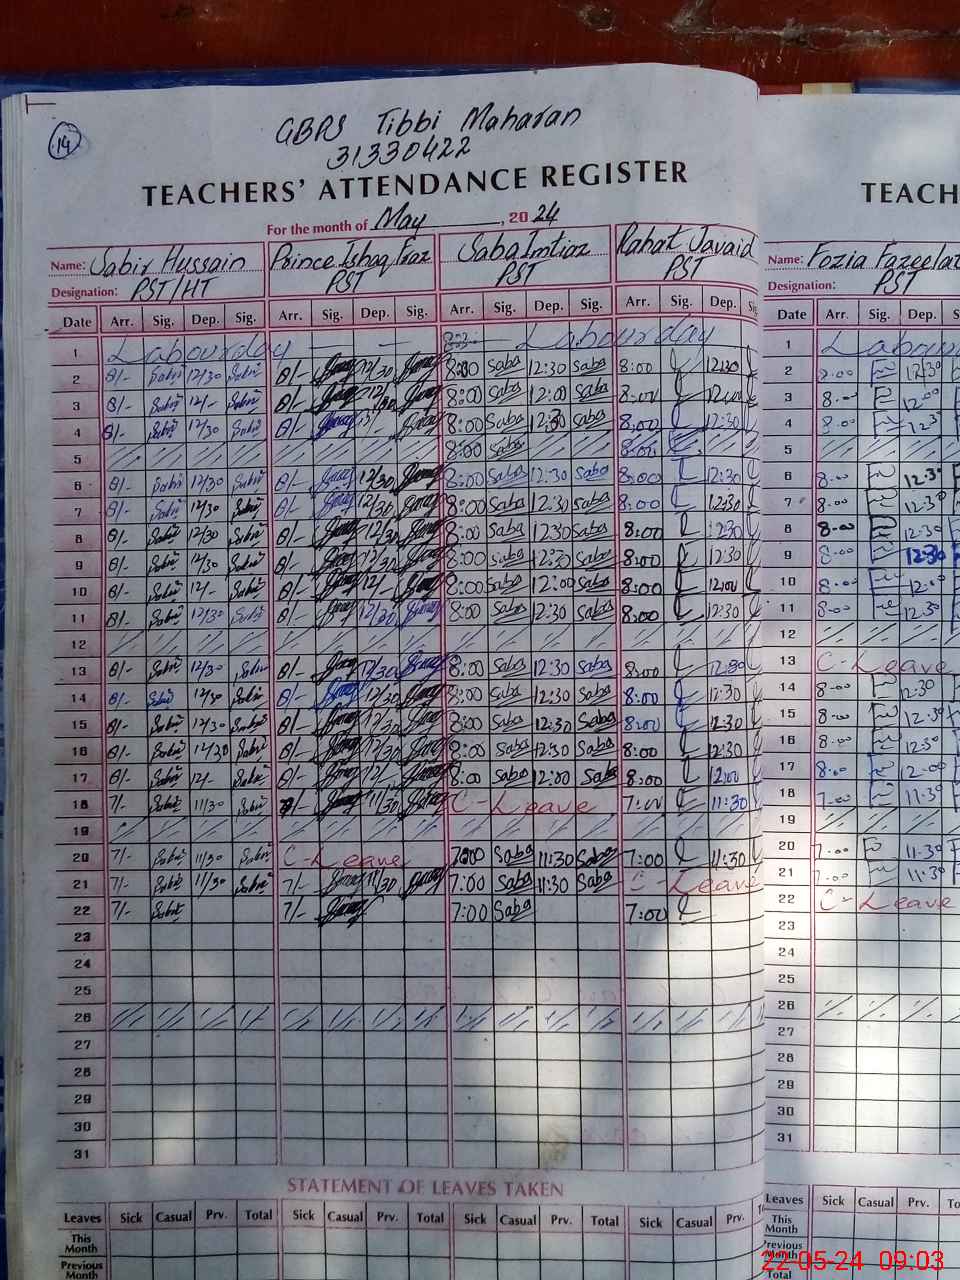 14
GBPS Tibbi Maharan
31330422
TEACHERS' ATTENDANCE REGISTER
For the month of May, 2024
Name: Sabir Hussain Prince Ishaq Iraz Saba Imtiaz Rahat Javaid
Designation: PST/HT PST PST PST
Date Arr. Sig. Dep. Sig. Arr. Sig. Dep. Sig. Arr. Sig. Dep. Sig. Arr. Sig. Dep.
1 Labour day Labour day
2 8/- Sabir 12/30 Sabir 8/- 12/30 8:30 Saba 12:30 Saba 8:00 12:30
3 8/- Sabir 12/- Sabir 8/- 8:00 Saba 12:00 Saba 8:00 12:00
4 8/- Sabir 12/30 Sabir 8/- 8:00 Saba 12:30 Saba 8:00 12:30
5 8:00 Saba 8:00
6 8/- Sabir 12/30 Sabir 8/- 12/30 8:00 Saba 12:30 Saba 8:00 12:30
7 8/- Sabir 12/30 Sabir 8/- 12/30 8:00 Saba 12:30 Saba 8:00 12:30
8 8/- Sabir 12/30 Sabir 8/- 12/30 8:00 Saba 12:30 Saba 8:00 12:30
9 8/- Sabir 12/30 Sabir 8/- 12/30 8:00 Saba 12:30 Saba 8:00 12:30
10 8/- Sabir 12/- Sabir 8/- 12/- 8:00 Saba 12:00 Saba 8:00 12:00
11 8/- Sabir 12/30 Sabir 8/- 12/30 8:00 Saba 12:30 Saba 8:00 12:30
12
13 8/- Sabir 12/30 Sabir 8/- 12/30 8:00 Saba 12:30 Saba 8:00 12:30
14 8/- Sabir 12/30 Sabir 8/- 12/30 8:00 Saba 12:30 Saba 8:00 12:30
15 8/- Sabir 12/30 Sabir 8/- 12/30 8:00 Saba 12:30 Saba 8:00 12:30
16 8/- Sabir 12/30 Sabir 8/- 12/30 8:00 Saba 12:30 Saba 8:00 12:30
17 8/- Sabir 12/- Sabir 8/- 12/- 8:00 Saba 12:00 Saba 8:00 12:00
18 7/- Sabir 11/30 Sabir 11/30 C-Leave 7:00 11:30
19
20 7/- Sabir 11/30 Sabir C-Leave 7:00 Saba 11:30 Saba 7:00 11:30
21 7/- Sabir 11/30 Sabir 7/- 11/30 7:00 Saba 11:30 Saba C-Leave
22 7/- Sabir 7/- 7:00 Saba 7:00
23
24
25
26
27
28
29
30
31
STATEMENT OF LEAVES TAKEN
Leaves Sick Casual Prv. Total Sick Casual Prv. Total Sick Casual Prv. Total Sick Casual Prv.
This Month
Previous Month
TEACH
Name: Fozia Fazeelat
Designation: PST
Date Arr. Sig. Dep. S
1 Labour
2 8:00 12:30
3 8:00 12:00
4 8:00 12:3
5
6 8:00 12:30
7 8:00 12:30
8 8:00 12:30
9 8:00 12:30
10 8:00 12:0
11 8:00 12:30
12
13 C-Leave
14 8:00 12:30
15 8:00 12:30
16 8:00 12:30
17 8:00 12:00
18 7:00 11:30
19
20 7:00 11:30
21 7:00 11:30
22 C-Leave
23
24
25
26
27
28
29
30
31
Leaves Sick Casual Prv. To
This Month
Previous Month
Total
22-05-24 09:03